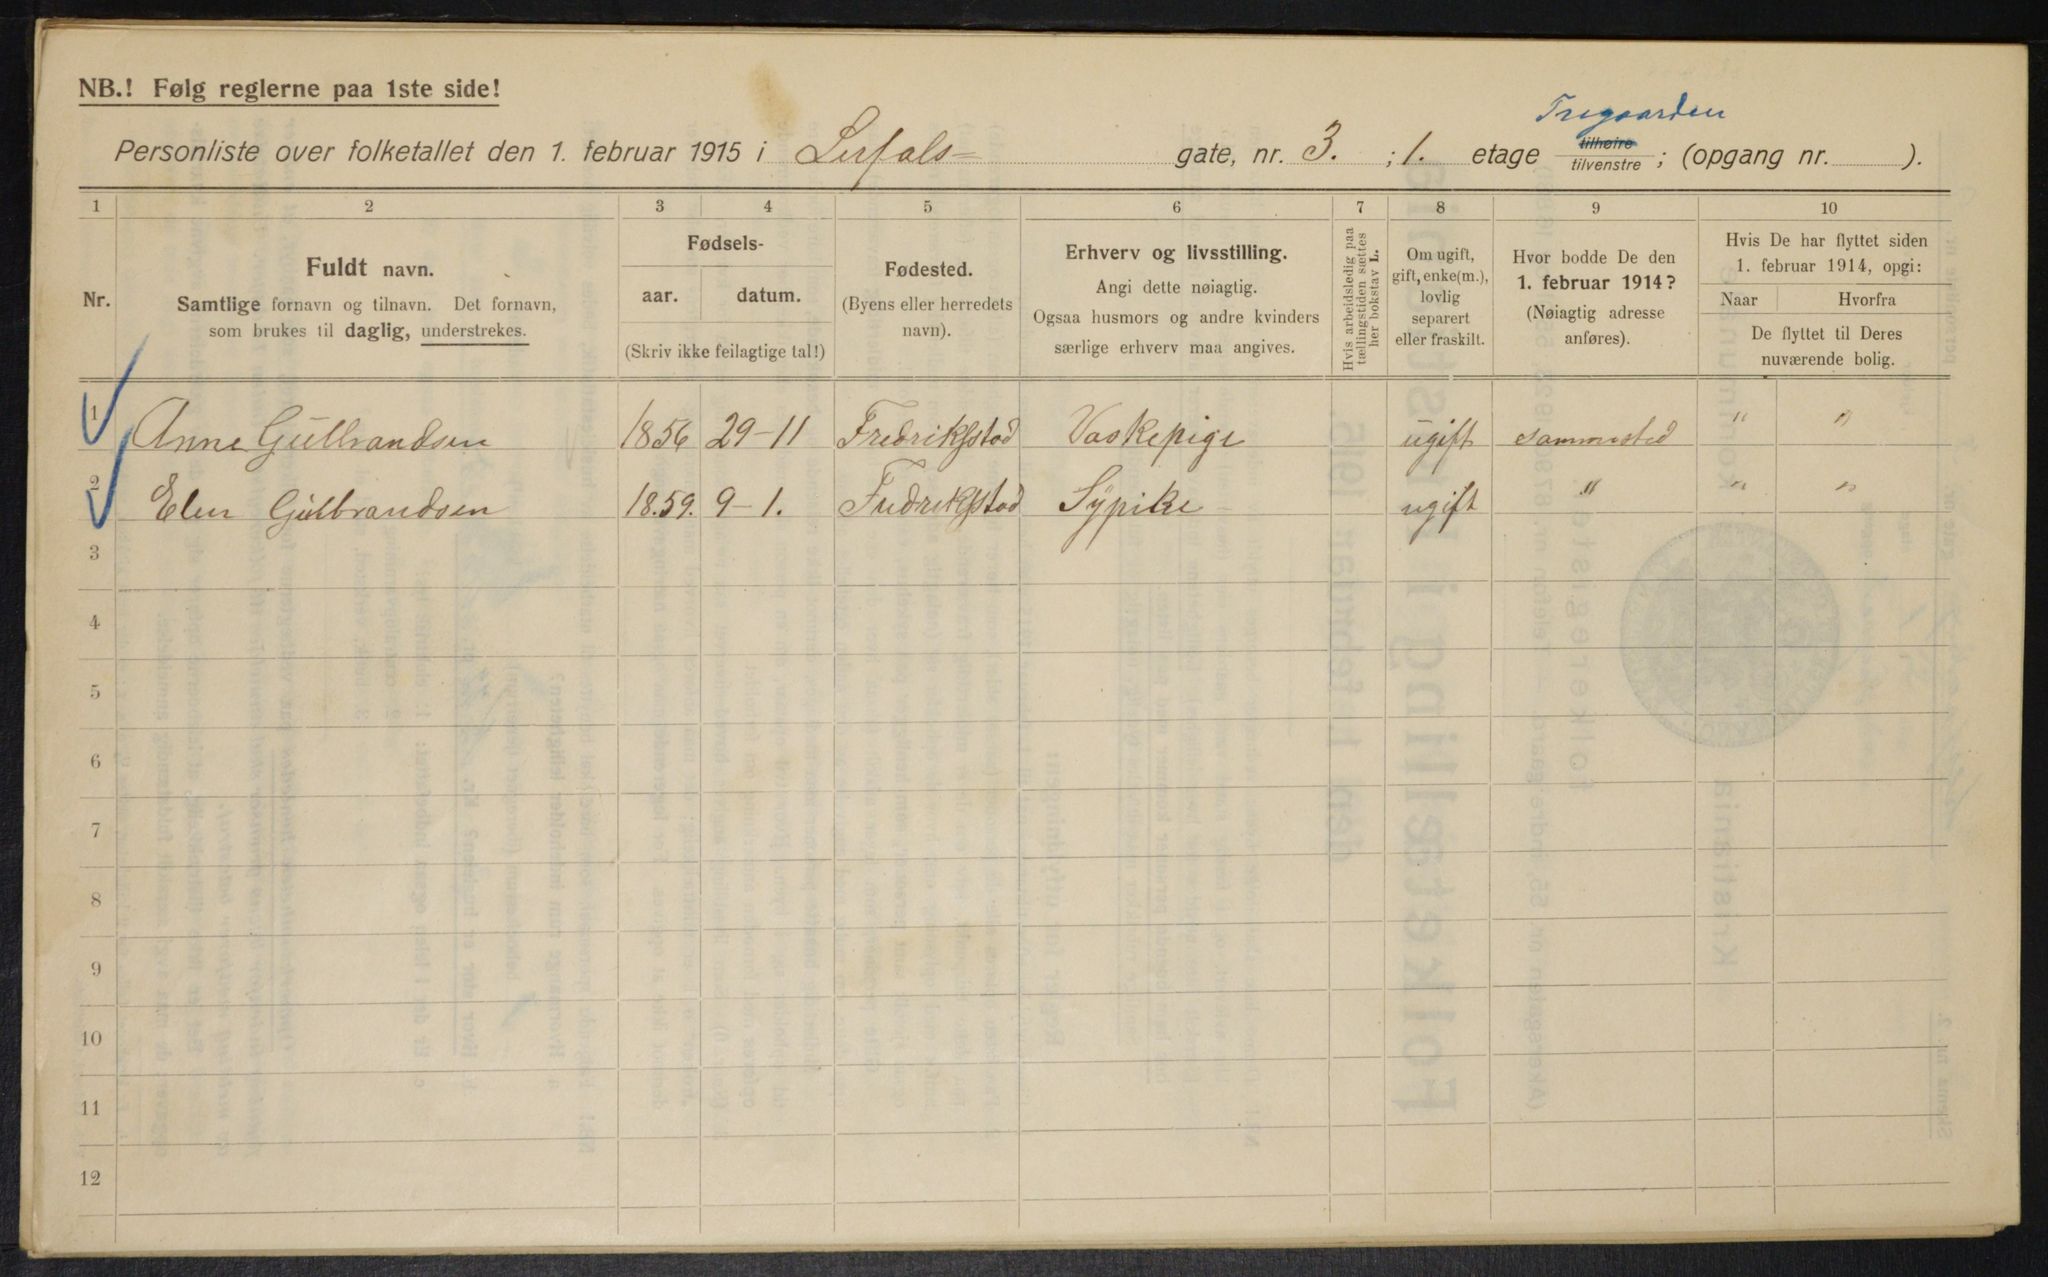 NB.! Følg reglerne paa 1ste side!
Personliste over folketallet den 1. februar 1915 i Lirfals= gate, nr. 3. ; 1. etage tilhøire tilvenstre Tregaarden ; (opgang nr. ).
1 2 3 4 5 6 7 8 9 10
Nr.
Fuldt navn.
Samtlige fornavn og tilnavn. Det fornavn,
som brukes til daglig, understrekes.
Fødsels-
aar. datum.
(Skriv ikke feilagtige tal!)
Fødested.
(Byens eller herredets
navn).
Erhverv og livsstilling.
Angi dette nøiagtig.
Ogsaa husmors og andre kvinders
særlige erhverv maa angives.
Hvis arbeidsledig paa
tællingstiden sættes
her bokstav L.
Om ugift,
gift, enke(m.),
lovlig
separert
eller fraskilt.
Hvor bodde De den
1. februar 1914?
(Nøiagtig adresse
anføres).
Hvis De har flyttet siden
1. februar 1914, opgi:
Naar Hvorfra
De flyttet til Deres
nuværende bolig.
1 Anne Gulbrandsen 1856 29-11 Fredrikstad Vaskepige ugift sammested " "
2 Elen Gulbrandsen 18.59. 9-1. Fredrikstad Sypike ugift " " "
3
4
5
6
7
8
9
10
11
12